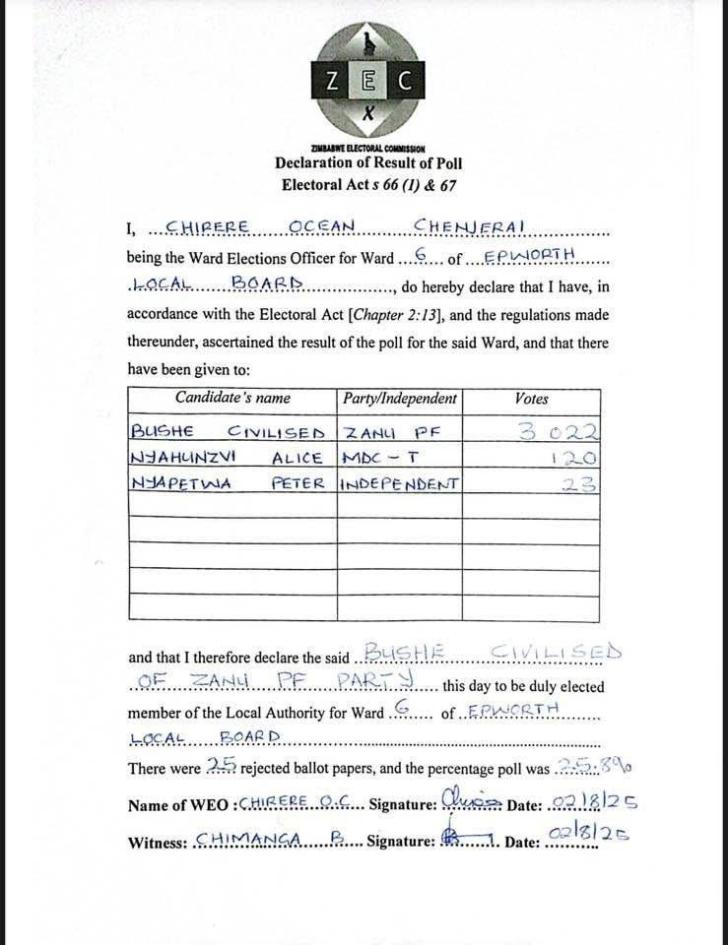 Z E C
X
ZIMBABWE ELECTORAL COMMISSION
Declaration of Result of Poll
Electoral Act s 66 (1) & 67
I, ...CHIRERE OCEAN CHENJERAI
being the Ward Elections Officer for Ward ...6... of ...EPWORTH
LOCAL BOARD..............., do hereby declare that I have, in
accordance with the Electoral Act [Chapter 2:13], and the regulations made
thereunder, ascertained the result of the poll for the said Ward, and that there
have been given to:
Candidate's name Party/Independent Votes
BUSHE CIVILISED ZANU PF 3 022
NYAHUNZVI ALICE MDC - T 120
NYAPETWA PETER INDEPENDENT 23
and that I therefore declare the said ..BUSHE CIVILISED
OF ZANU PF PARTY... this day to be duly elected
member of the Local Authority for Ward ..6...... of ..EPWORTH
LOCAL BOARD
There were 25 rejected ballot papers, and the percentage poll was 25.8%
Name of WEO : CHIRERE O.C... Signature: Date: 02/8/25
Witness: CHIMANGA B.... Signature: Date: 02/8/25